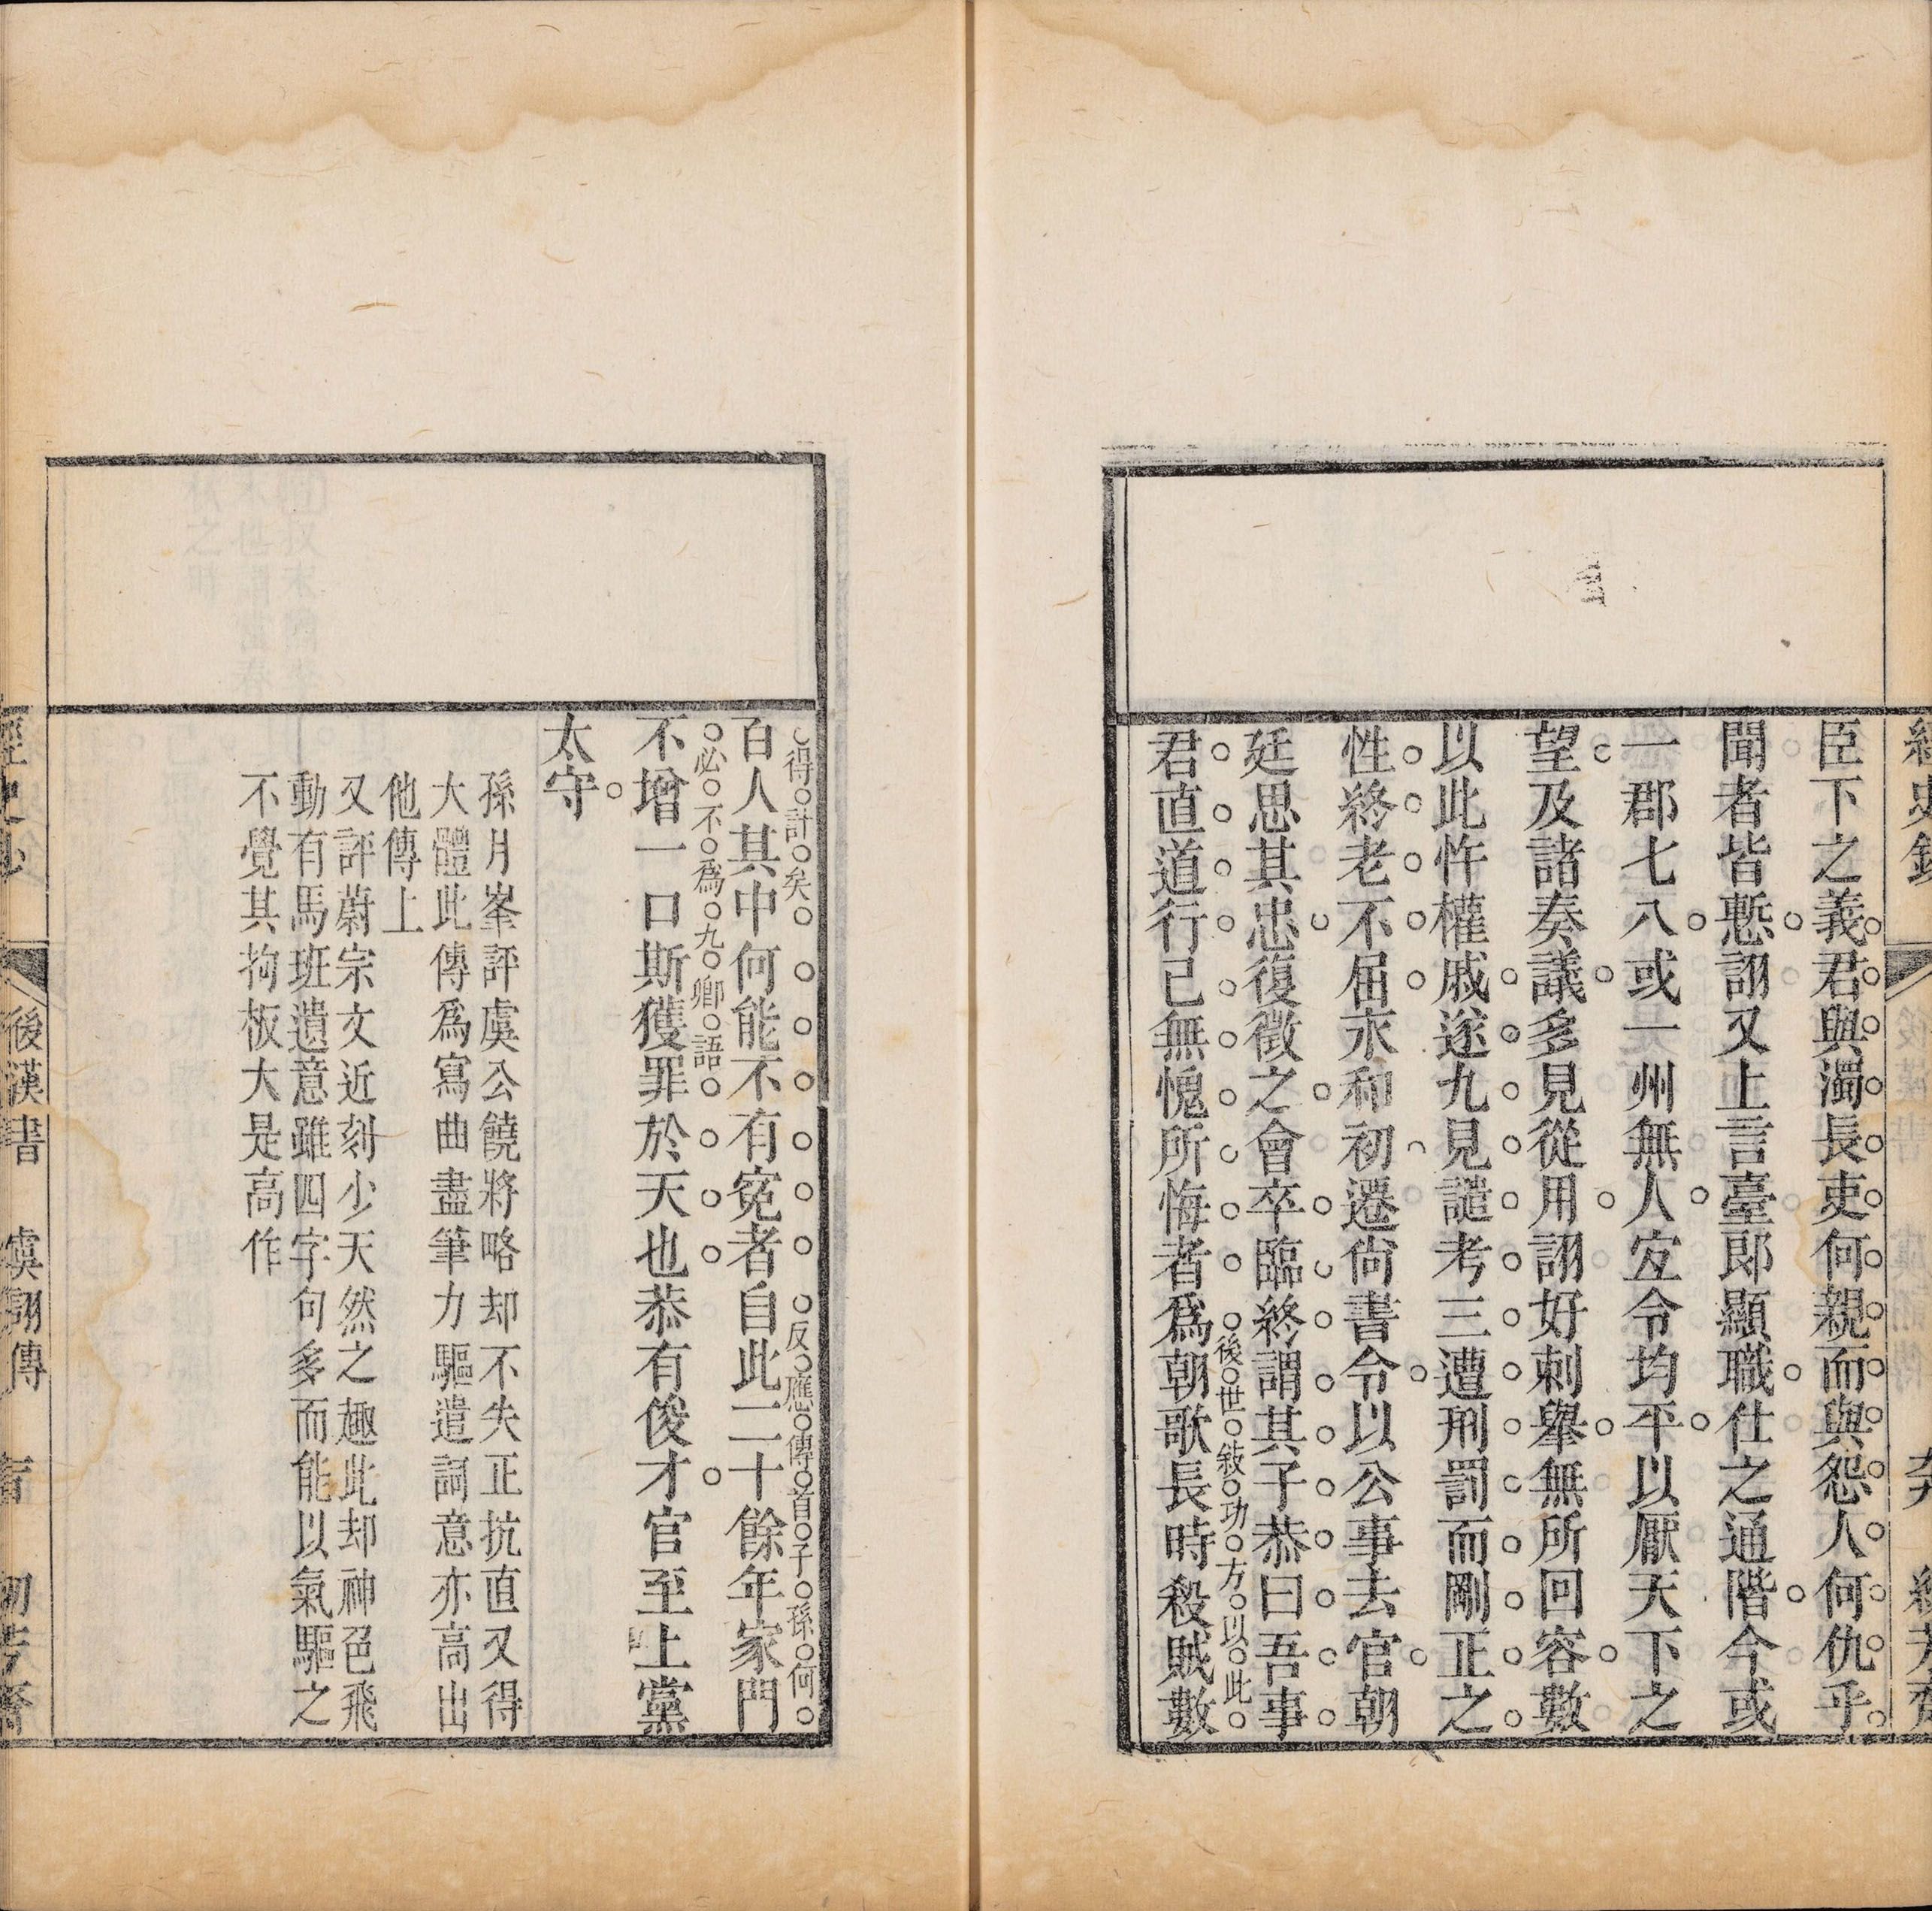 臣下之義君與濁長吏何親而與怨人何仇乎
聞者皆慙詡又上言臺郎顯職仕之通階今或
一郡七八或一州無人宐令均平以厭天下之
望及諸奏議多見從用詡好刺舉無所回容數
以此忤權戚遂九見譴考三遭刑罰而剛正之
性終老不屈永和初遷尚書令以公事去官朝
廷思其忠復徵之會卒臨終謂其子恭曰吾事
後世敍功方以此
君直道行已無愧所悔者爲朝歌長時殺賊數
得計矣
反應傳首子孫何
百人其中何能不有寃者自此二十餘年家門
必不爲九卿語
不增一口斯獲罪於天也恭有俊才官至上黨
太守
孫月峯評虞公饒將略却不失正抗直又得
大體此傳爲寫曲盡筆力驅遣詞意亦高出
他傳上
又評蔚宗文近刻少天然之趣此却神色飛
動有馬班遺意雖四字句多而能以氣驅之
不覺其拘板大是高作
後漢書 虞詡傳